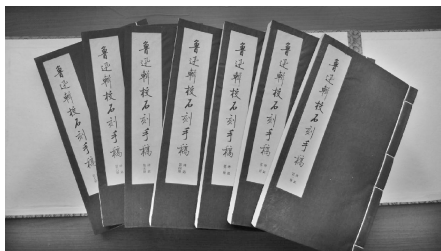 鲁迅辑校石刻手稿
鲁迅辑校石刻手稿
鲁迅辑校石刻手稿
鲁迅辑校石刻手稿
鲁迅辑校石刻手稿
鲁迅辑校石刻手稿
鲁迅辑校石刻手稿